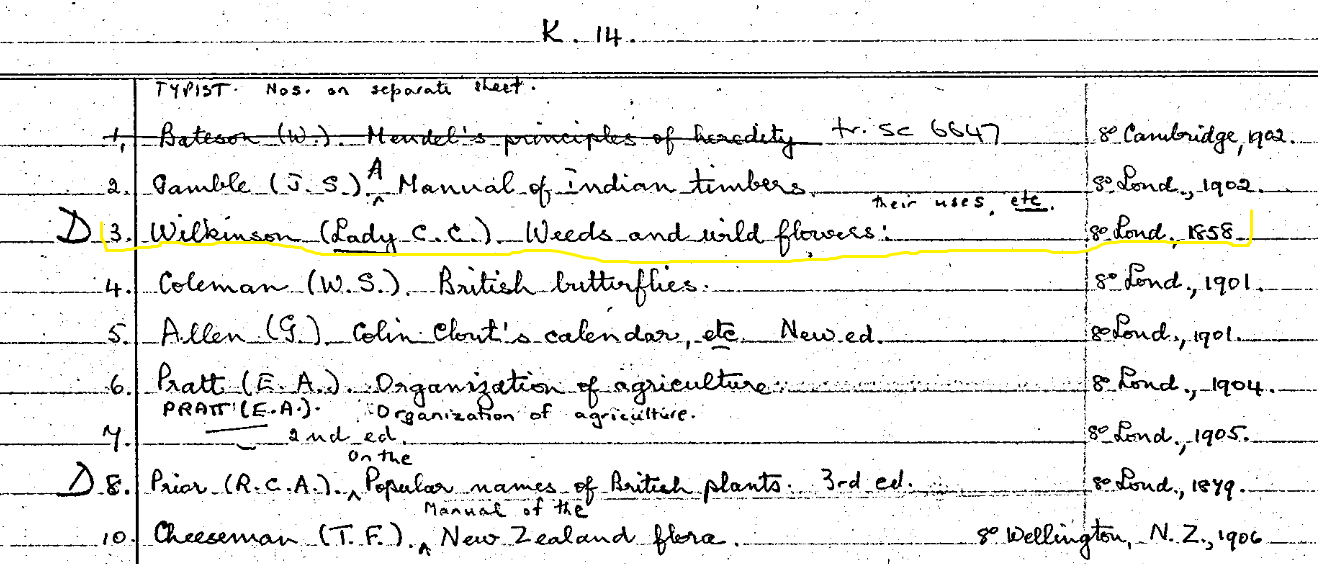 K. 14.
TYPIST. Nos. on separate sheet.
1. Bateson (W.). Mendel's principles of heredity tr. Sc 6647 8º Cambridge, 1902.
2. Gamble (J. S.). A Manual of Indian timbers. 8º Lond., 1902.
their uses, etc.
D 3. Wilkinson (Lady C. C.). Weeds and wild flowers: 8º Lond., 1858.
4. Coleman (W. S.). British butterflies. 8º Lond., 1901.
5. Allen (G.). Colin Clout's calendar, etc. New ed. 8º Lond., 1901.
6. Pratt (E. A.). Organization of agriculture. 8º Lond., 1904.
PRATT (E.A.). Organization of agriculture.
7. 2nd ed. 8º Lond., 1905.
On the
D 8. Prior (R. C. A.). Popular names of British plants. 3rd ed. 8º Lond., 1879.
Manual of the
10. Cheeseman (T. F.). New Zealand flora. 8º Wellington, N. Z., 1906